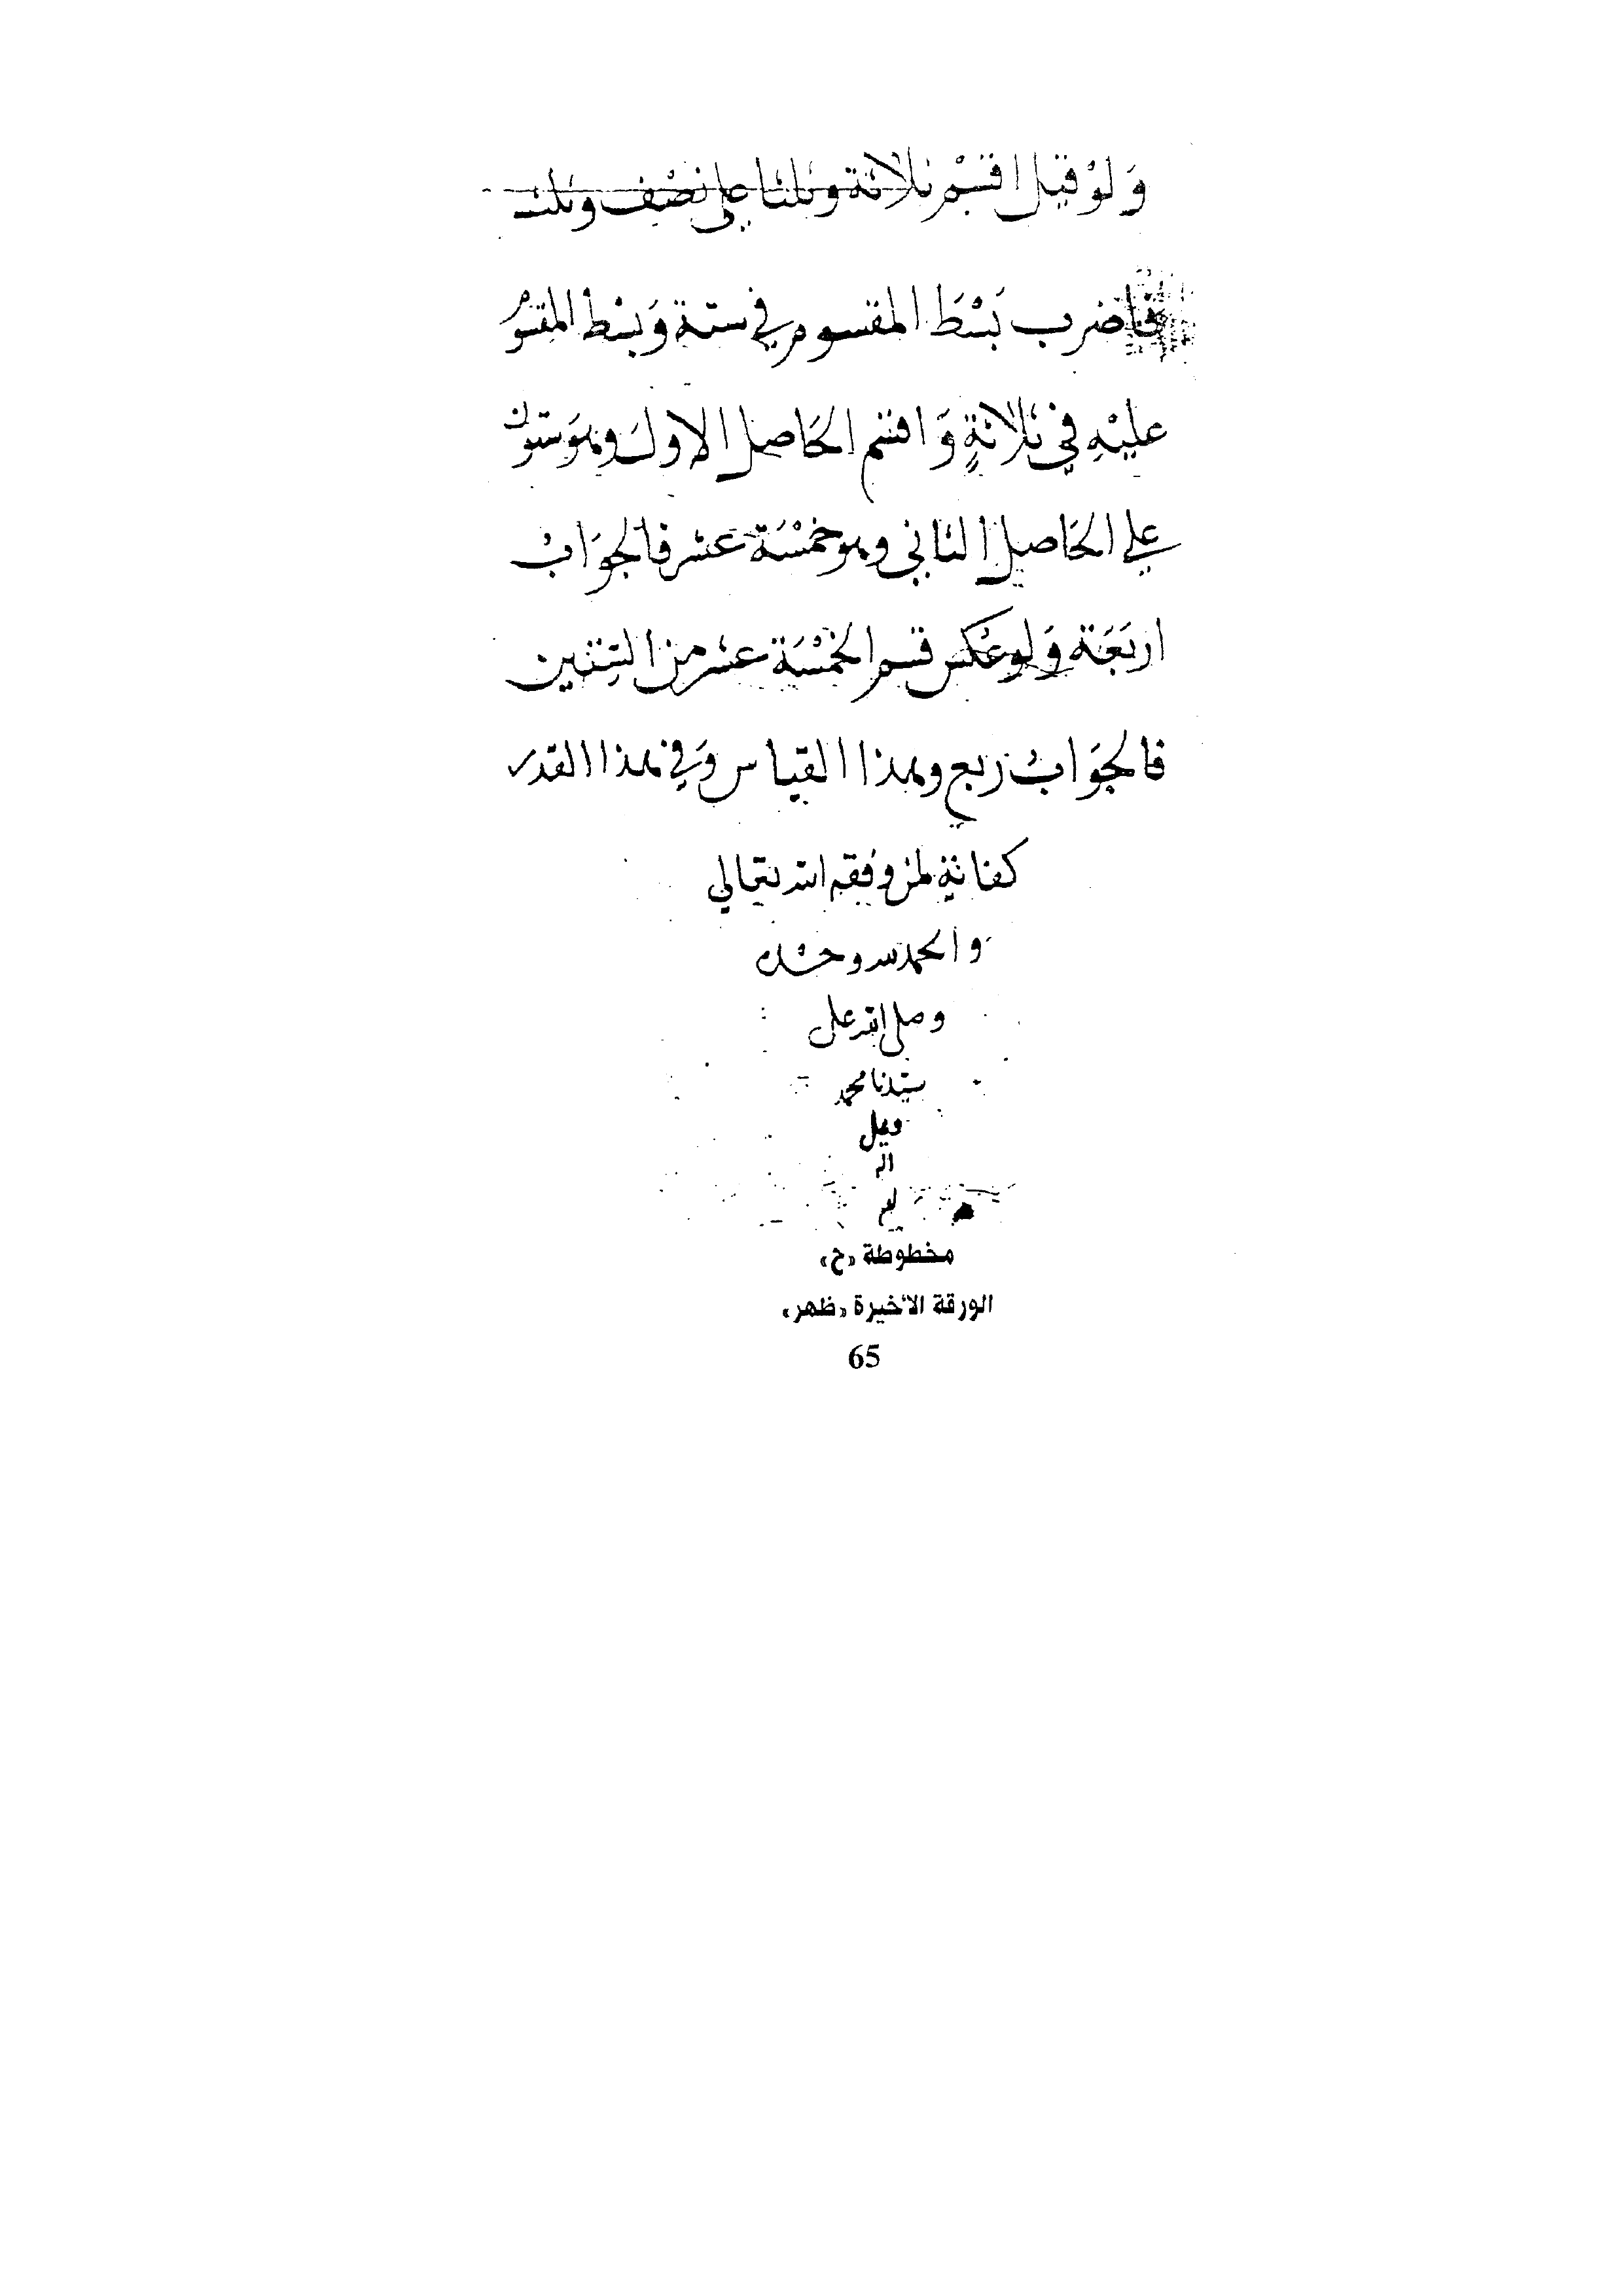 وَلَوْ قيل اقسْم ثلاثة وثلثا على نصْف وثلث
فاضرب بَسْطَ المقسوم في ستة وَبسْط المقسُوم
عليْهِ في ثلاثةٍ وَاقسم الحَاصل الاولَ وهوَ ستون
على الحَاصل الثاني وهو خمْسَة عشر فالجوَابُ
اربَعَة وَلو عُكس قسم الخمْسَة عشر من الستين
فالجوَابُ ربع وهذا القياس وَفي هذا القدر
كفاية لمن وفقه الله تعالي
والحمد لله وحْده
وصلى الله على
سيّدنا محمد
وعلى
اله
مخطوطة «ح»
الورقة الأخيرة «ظهر»
65